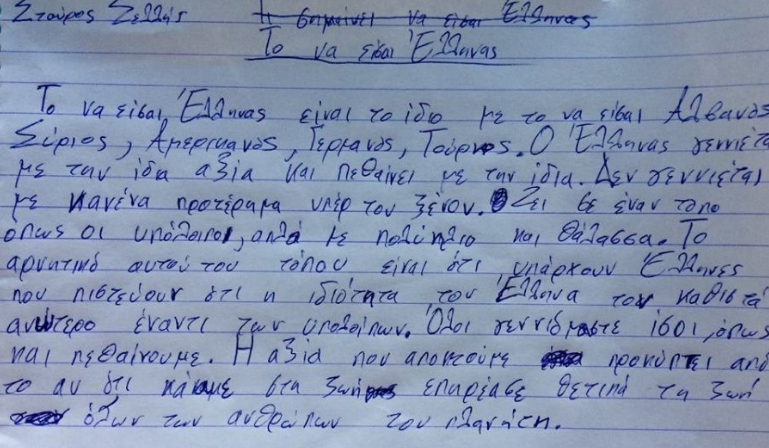 Σταύρος Ζελλής Τι σημαίνει να είσαι Έλληνας
Το να είσαι Έλληνας
Το να είσαι Έλληνας είναι το ίδιο με το να είσαι Αλβανός
Σύριος, Αμερικανός, Γερμανός, Τούρκος. Ο Έλληνας γεννιέτα
με την ίδια αξία και πεθαίνει με την ίδια. Δεν γεννιέται
με κανένα προτέραμα υπέρ του ξένου. Ζει σε έναν τόπο
όπως οι υπόλοιποι, απλά με πολύ ήλιο και θάλασσα. Το
αρνητικό αυτού του τόπου είναι ότι, υπάρχουν Έλληνες
που πιστεύουν ότι η ιδιότητα του Έλληνα τον καθιστά
ανώτερο έναντι των υπολοίπων. Όλοι γεννιόμαστε ίσοι, όπως
και πεθαίνουμε. Η αξία που αποκτούμε προκύπτει από
το αν ότι κάναμε στη ζωή επηρέασε θετικά τη ζωή
όλων των ανθρώπων του πλανήτη.